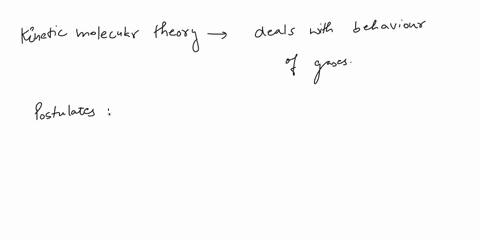 Kinetic molecular theory → deals with behaviour
of gases.
Postulates :